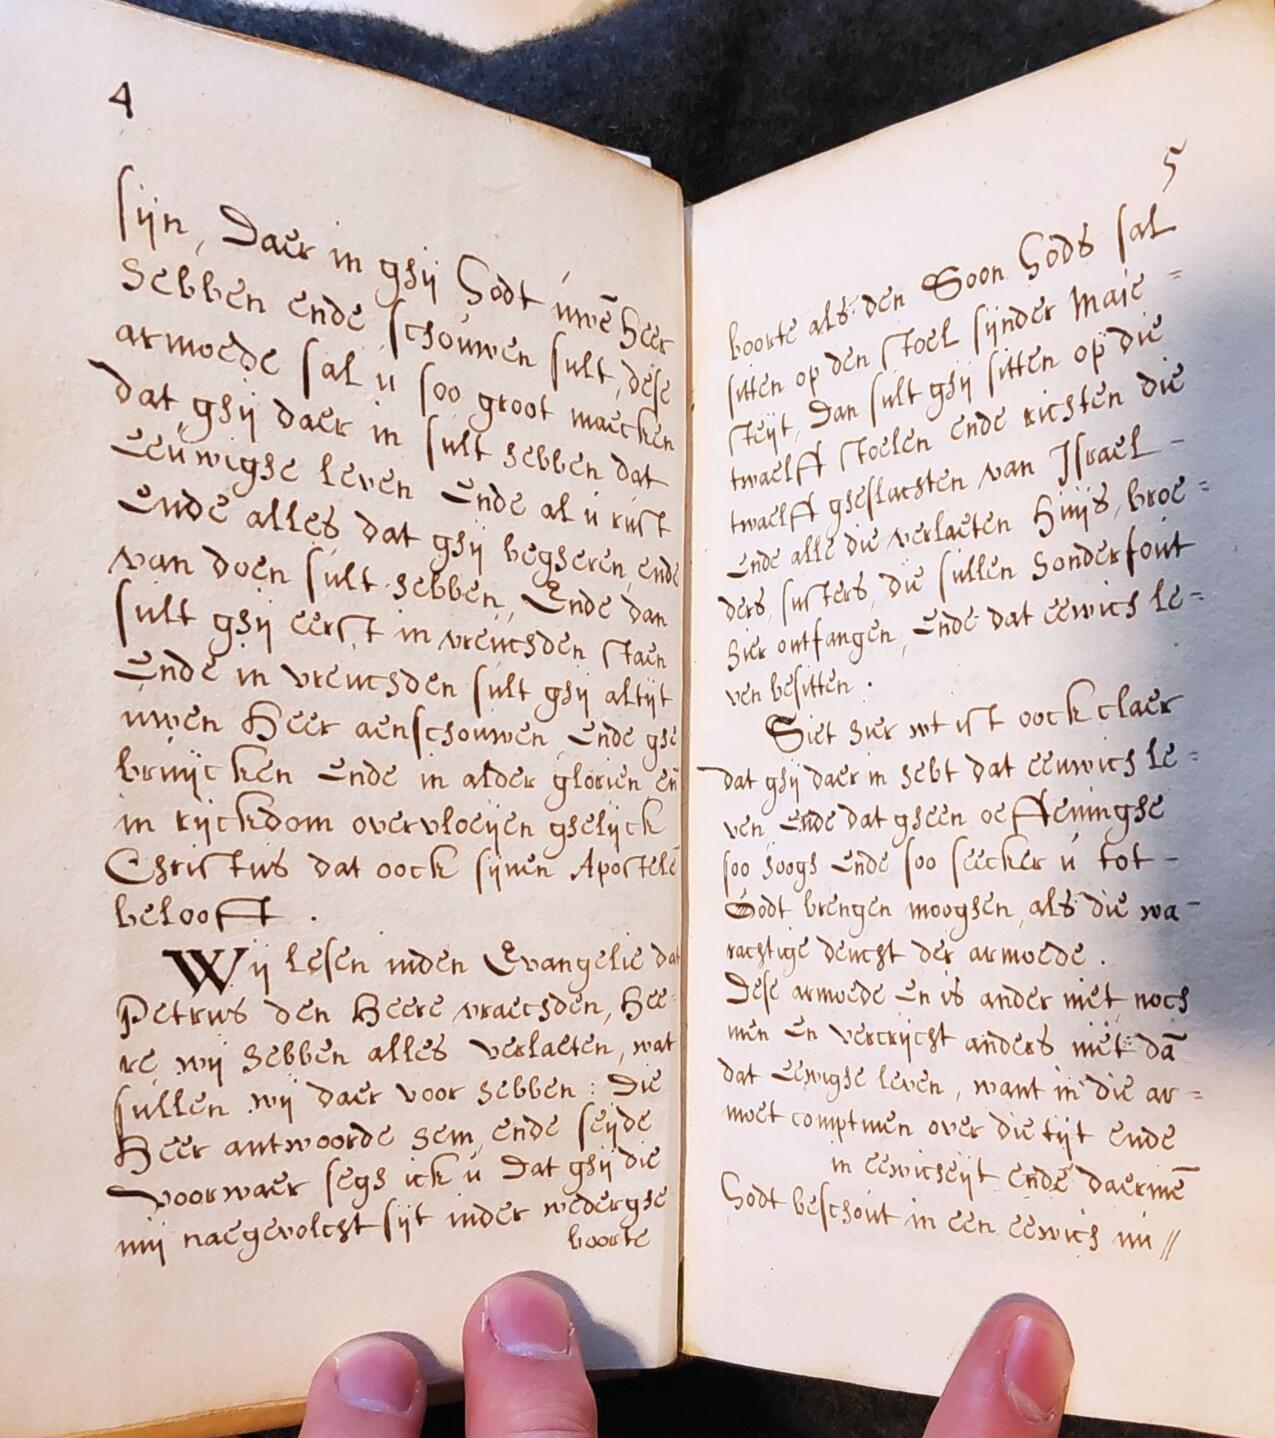 4
sijn, Daer in ghij Godt uwē Heer
hebben ende schouwen sult, dese
armoede sal u soo groot maecken
dat ghij daer in sult hebben dat
Eeuwighe leven Ende al u rust
Ende alles dat ghij begheren, ende
van doen sult hebben, Ende dan
sult ghij eerst in vreuchden staen
Ende in vreuchden sult ghij altijt
uwen Heer aenschouwen, Ende ghe
bruijcken Ende in alder glorien eñ
in rijckdom overvloeijen ghelijck
Christus dat oock sijnen Apostelē
belooft .
Wij lesen inden Evangelie dat
Petrus den Heere vraechden, Hee=
re wij hebben alles verlaeten, wat
sullen wij daer voor hebben : Die
Heer antwoorde hem, ende seijde
voorwaer segh ick u Dat ghij die
mij naegevolcht sijt inder wederghe
boorte
5
boorte als den Soon Gods sal
sitten op den stoel sijnder Maie =
steijt, Dan sult ghij sitten op die
twaelft stoelen ende richten die
twaelft gheslachten van Israel -
Ende alle die verlaeten Huijs, broe =
ders, susters, die sullen honderfout
hier ontfangen, Ende dat eewich le =
ven besitten .
Siet hier wt ist oock claer
dat ghij daer in hebt dat eeuwich le =
ven Ende dat gheen oeffeninghe
soo hoogh Ende soo seecker u tot -
Godt brengen mooghen, als die wa -
rachtige deucht der armoede .
Dese armoede En is ander niet, noch
men En vercrijcht anders niet dā
dat Eewighe leven, want in die ar =
moet comptmen over die tijt ende
in eewicheijt ende daermē
Godt beschout in een eewich nu //